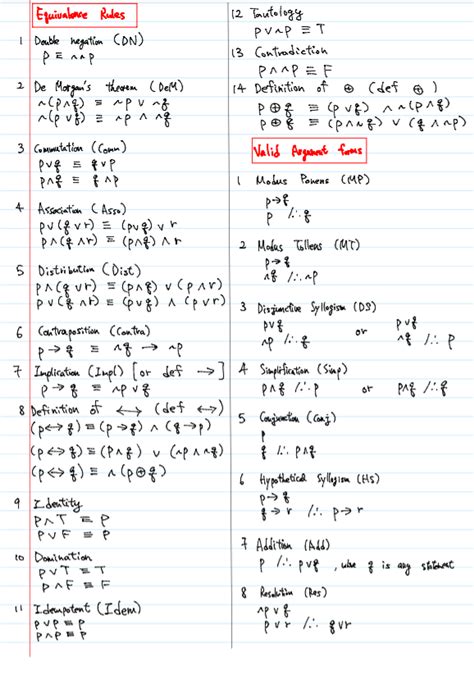 Equivalence Rules
1 Double negation (DN)
p ≡ ~~p
2 De Morgan's theorem (DeM)
~(p∧q) ≡ ~p ∨ ~q
~(p∨q) ≡ ~p ∧ ~q
3 Commutation (Com)
p∨q ≡ q∨p
p∧q ≡ q∧p
4 Association (Asso)
p∨(q∨r) ≡ (p∨q)∨r
p∧(q∧r) ≡ (p∧q)∧r
5 Distribution (Dist)
p∧(q∨r) ≡ (p∧q) ∨ (p∧r)
p∨(q∧r) ≡ (p∨q) ∧ (p∨r)
6 Contraposition (Contra)
p→q ≡ ~q → ~p
7 Implication (Impl) [or def →]
p→q ≡ ~p∨q
8 Definition of ↔ (def ↔)
(p↔q) ≡ (p→q) ∧ (q→p)
(p↔q) ≡ (p∧q) ∨ (~p∧~q)
(p↔q) ≡ ~(p⊕q)
9 Identity
p∧T ≡ p
p∨F ≡ p
10 Domination
p∨T ≡ T
p∧F ≡ F
11 Idempotent (Idem)
p∨p ≡ p
p∧p ≡ p
12 Tautology
p∨~p ≡ T
13 Contradiction
p∧~p ≡ F
14 Definition of ⊕ (def ⊕)
p⊕q ≡ (p∨q) ∧ ~(p∧q)
p⊕q ≡ (p∧~q) ∨ (q∧~p)
Valid Argument forms
1 Modus Ponens (MP)
p→q
p /∴ q
2 Modus Tollens (MT)
p→q
~q /∴ ~p
3 Disjunctive Syllogism (DS)
p∨q or p∨q
~p /∴ q ~q /∴ p
4 Simplification (Simp)
p∧q /∴ p or p∧q /∴ q
5 Conjunction (Conj)
p
q /∴ p∧q
6 Hypothetical Syllogism (HS)
p→q
q→r /∴ p→r
7 Addition (Add)
p /∴ p∨q, q is any statement
8 Resolution (Res)
~p∨q
p∨r /∴ q∨r